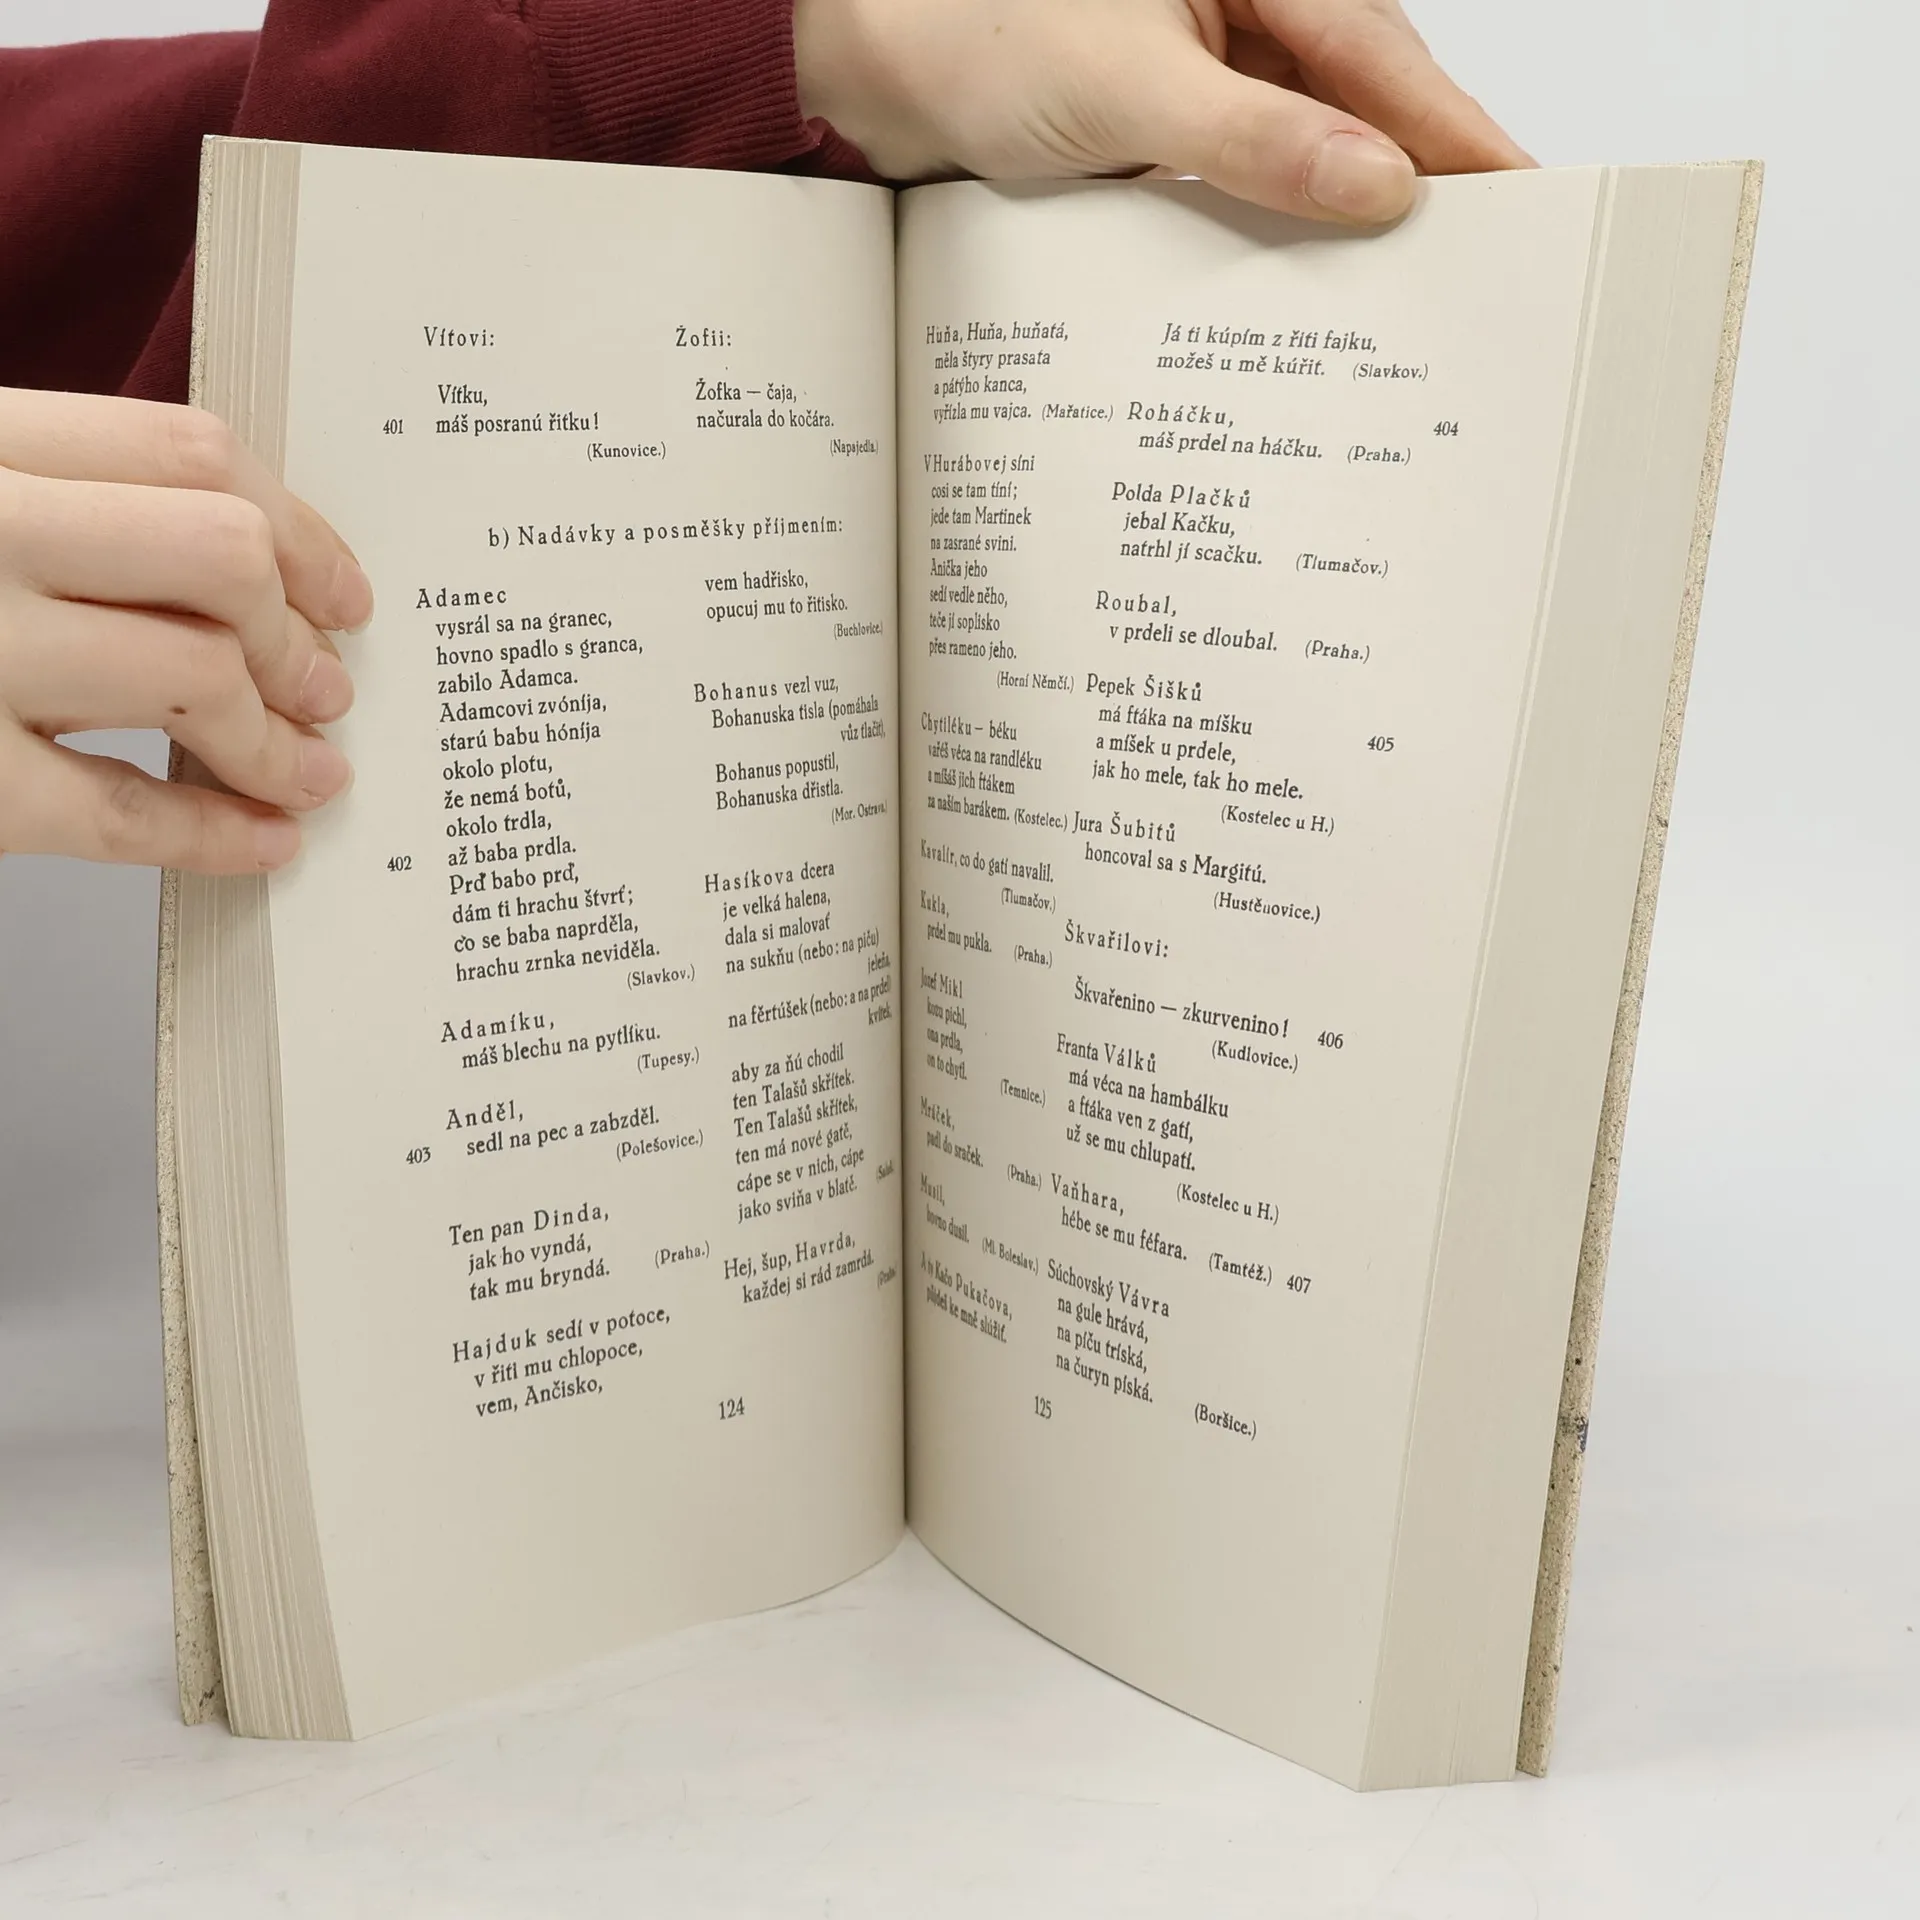 Vítovi:
Vítku,
401 máš posranú řitku!
(Kunovice.)
Žofii:
Žofka — čaja,
načurala do kočára.
(Napajedla.)
b) Nadávky a posměšky příjmením:
Adamec
vysrál sa na granec,
hovno spadlo s granca,
zabilo Adamca.
Adamcovi zvóníja,
starú babu hóníja
okolo plotu,
že nemá botů,
okolo trdla,
402 až baba prdla.
Prď babo prď,
dám ti hrachu štvrť;
čo se baba naprděla,
hrachu zrnka neviděla.
(Slavkov.)
Adamíku,
máš blechu na pytlíku.
(Tupesy.)
Anděl,
403 sedl na pec a zabzděl.
(Polešovice.)
Ten pan Dinda,
jak ho vyndá,
tak mu bryndá. (Praha.)
Hajduk sedí v potoce,
v řiti mu chlopoce,
vem, Ančisko,
vem hadřisko,
opucuj mu to řitisko.
(Buchlovice.)
Bohanus vezl vuz,
Bohanuska tisla (pomáhala
vůz tlačit),
Bohanus popustil,
Bohanuska dřistla.
(Mor. Ostrava.)
Hasíkova dcera
je velká halena,
dala si malovať
na sukňu (nebo: na piču)
jeleňa,
na fěrtúšek (nebo: a na prdel)
kvítek,
aby za ňú chodil
ten Talašů skřítek.
Ten Talašů skřítek,
ten má nové gatě,
cápe se v nich, cápe
jako sviňa v blatě.
Hej, šup, Havrda,
každej si rád zamrdá.
124
Huňa, Huňa, huňatá,
měla štyry prasata
a pátýho kanca,
vyřízla mu vajca. (Mařatice.)
V Hurábovej síni
cosi se tam tíní;
jede tam Martinek
na zasrané svini.
Anička jeho
sedí vedle něho,
teče jí soplisko
přes rameno jeho.
(Horní Němčí.)
Chytiléku — béku
vařéš véca na randléku
a míšáš jich ftákem
za naším barákem. (Kostelec.)
Kavalír, co do gatí navalil.
(Tlumačov.)
Kukla,
prdel mu pukla. (Praha.)
Jozef Mikl
kozu pichl,
ona prdla,
on to chytl.
(Temnice.)
Mráček,
padl do sraček.
(Praha.)
Musil,
hovno dusil. (Ml. Boleslav.)
A ty Kačo Pukačova,
půjdeš ke mně slúžiť.
Já ti kúpím z řiti fajku,
možeš u mě kúřit. (Slavkov.)
Roháčku, 404
máš prdel na háčku. (Praha.)
Polda Plačků
jebal Kačku,
natrhl jí scačku. (Tlumačov.)
Roubal,
v prdeli se dloubal. (Praha.)
Pepek Šišků
má ftáka na míšku 405
a míšek u prdele,
jak ho mele, tak ho mele.
(Kostelec u H.)
Jura Šubitů
honcoval sa s Margitú.
(Hustěnovice.)
Škvařilovi:
Škvařenino — zkurvenino! 406
(Kudlovice.)
Franta Válků
má véca na hambálku
a ftáka ven z gatí,
už se mu chlupatí.
(Kostelec u H.)
Vaňhara,
hébe se mu féfara. (Tamtéž.) 407
Súchovský Vávra
na gule hrává,
na píču tríská,
na čuryn píská.
(Boršice.)
125